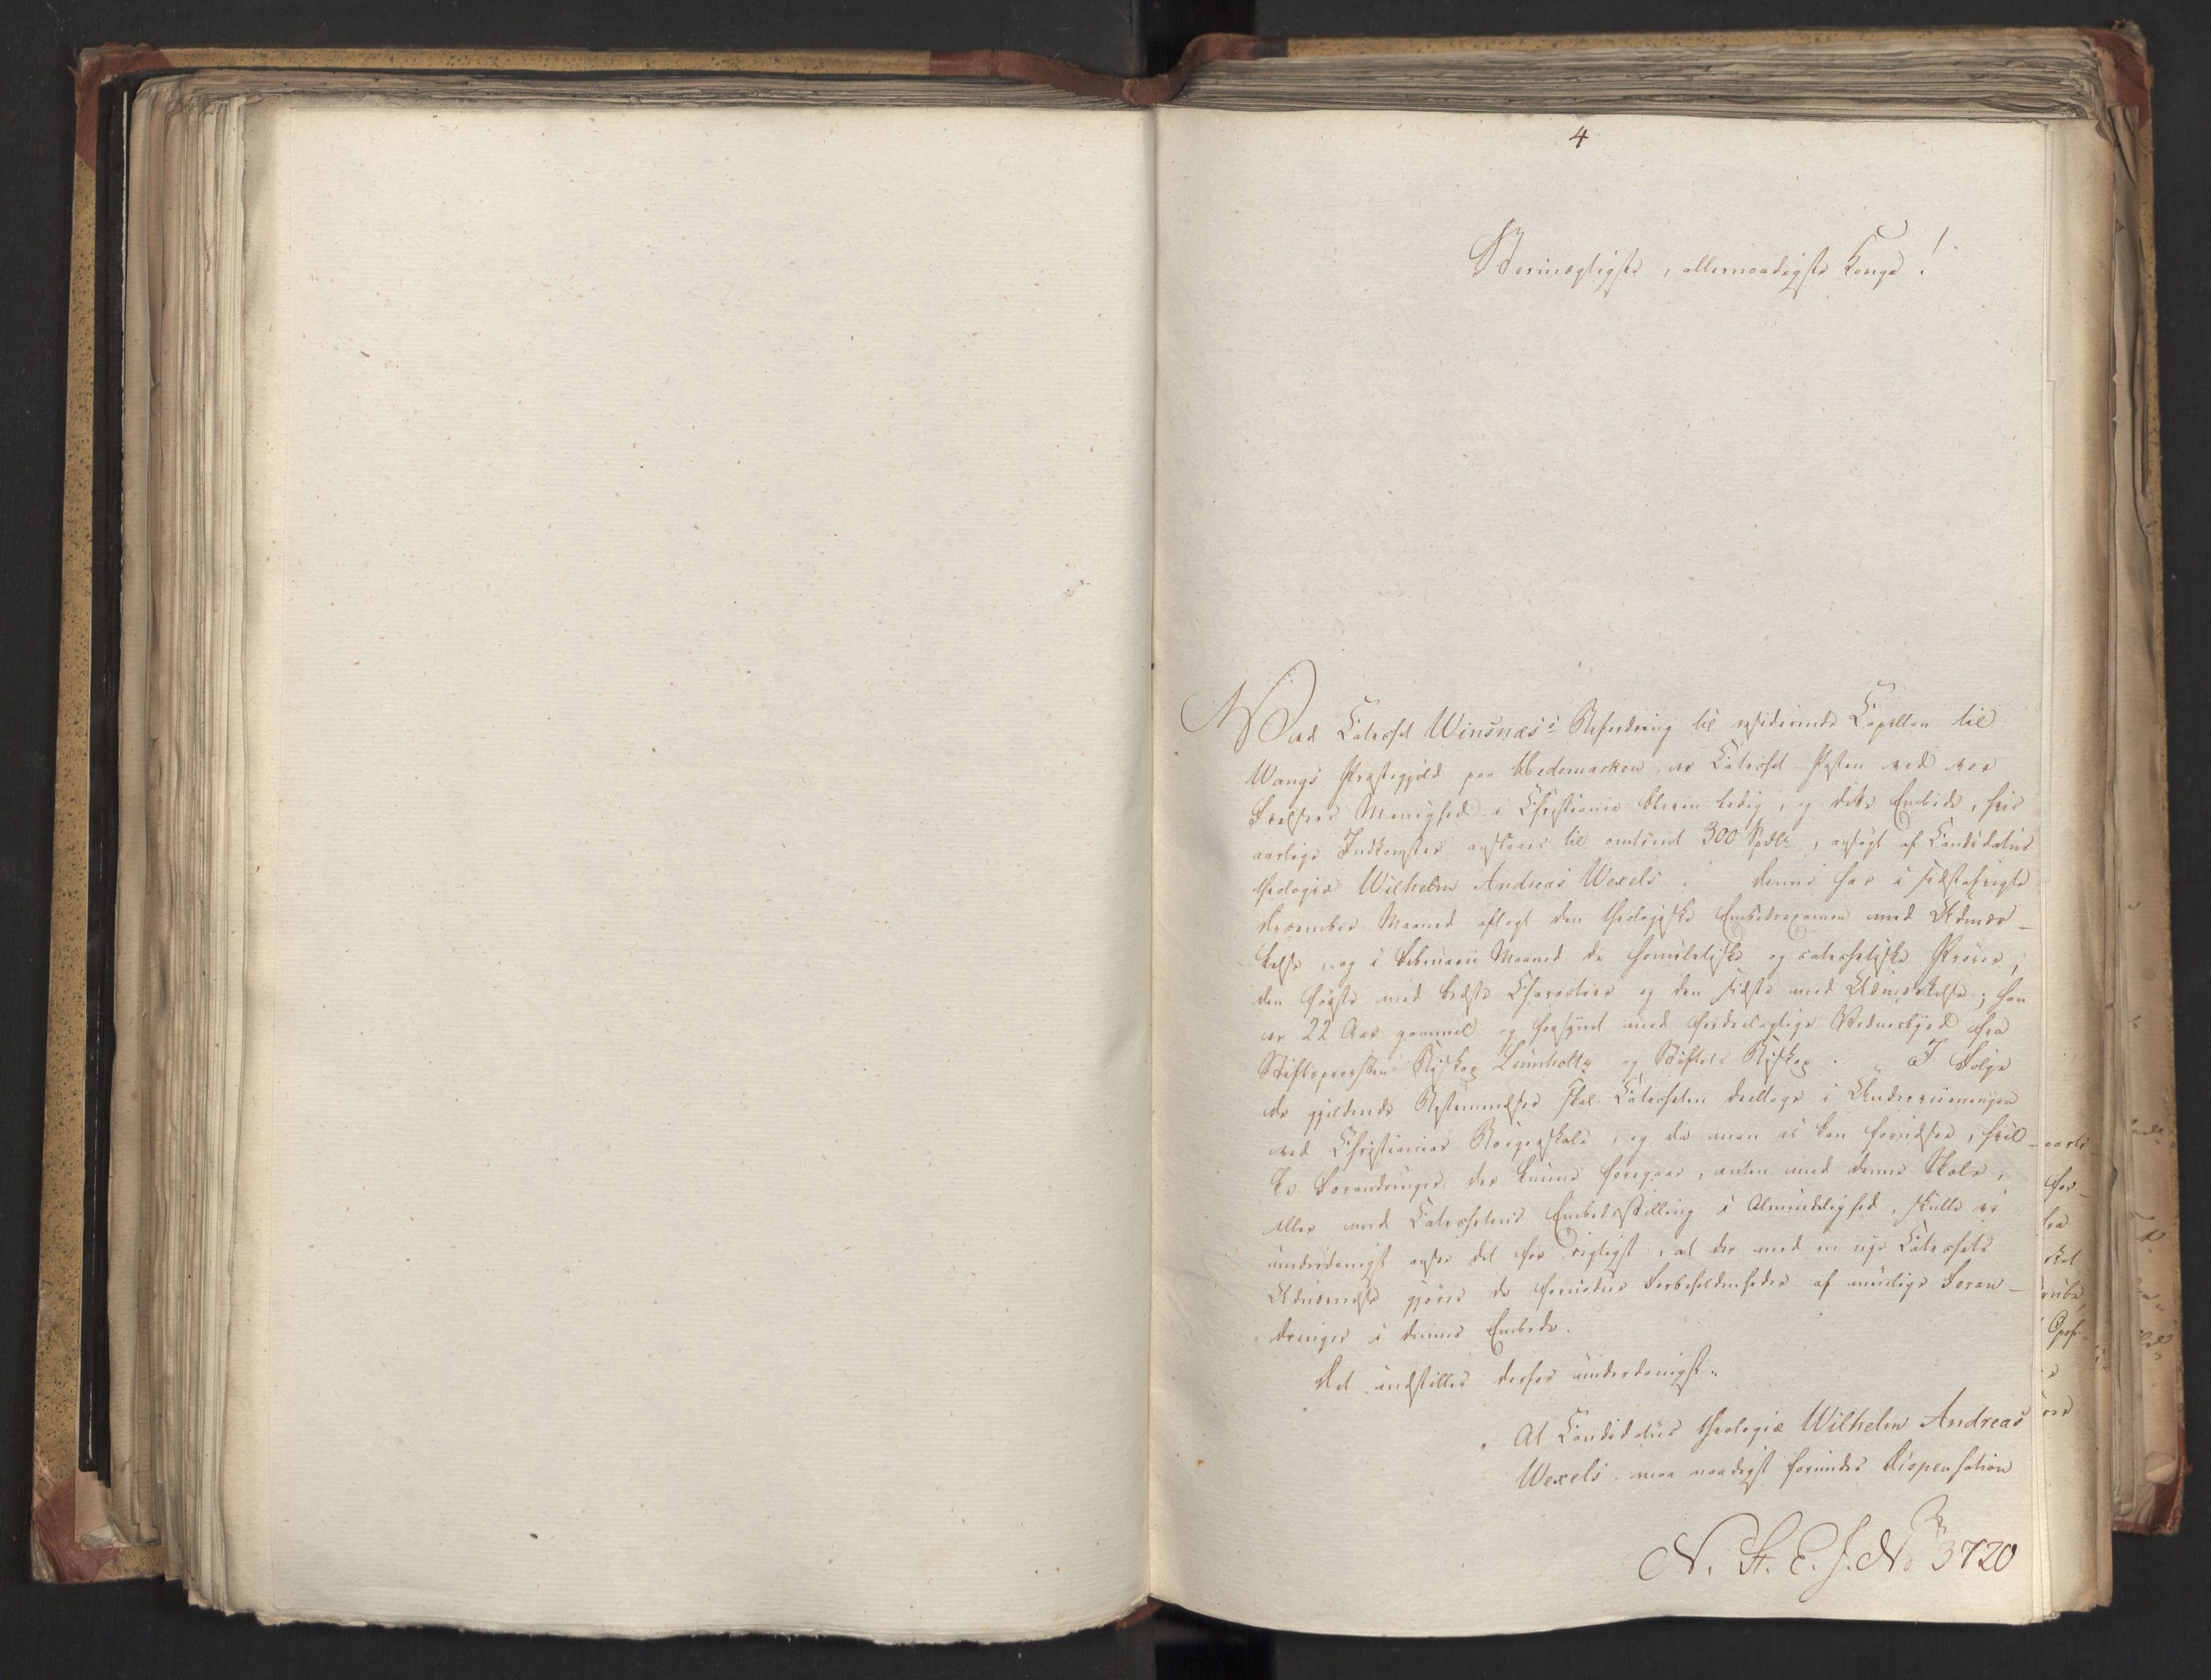 4
Stormægtigste, allernaadigste Konge!
Ved Catechet Winsnæs's Befordring til residerende Capellan til
Wangs Præstegjeld paa Hedemarken, er Catechet-Posten ved vor
Frelsers Menighed i Christiania bleven ledig, og dette Embede, hvis
aarlige Indkomster anslaaes til omtrent 300 Spdlr, ansøgt af Candidatus
theologiæ Wilhelm Andreas Wexels. Denne har i sidstafvigte
December Maaned aflagt den theologiske Embedsexamen med Udmær-
kelse, og i Februarii Maaned de homiletiske og catechetiske Prøver;
den første med bedste Characteer og den sidste med Udmærkelse; han
er 22 Aar gammel og forsynet med fordeelagtige Vidnesbyrd fra
Stiftsprovsten Biskop Lumholtz og Stiftets Biskop. I Følge
de gjeldende Bestemmelser skal Catecheten deeltage i Underviisningen
ved Christianias Borgerskole, og da man ei kan forudsee, hvil-
ke Forandringer der kunne foregaae, enten med denne Skole,
eller med Catechetens Embedsstilling i Almindelighed, skulle vi
underdanigst ansee det for rigtigst, at der med en nye Catechets
Udnævnelse gjøres de fornødne Forbeholdenheder af muelige Foran-
dringer i dennes Embede.
Det indstilles derfor underdanigst:
At Candidatus theologiæ Wilhelm Andreas
Wexels maa naadigst forundes Dispensation
N. St. E. J. No 3720